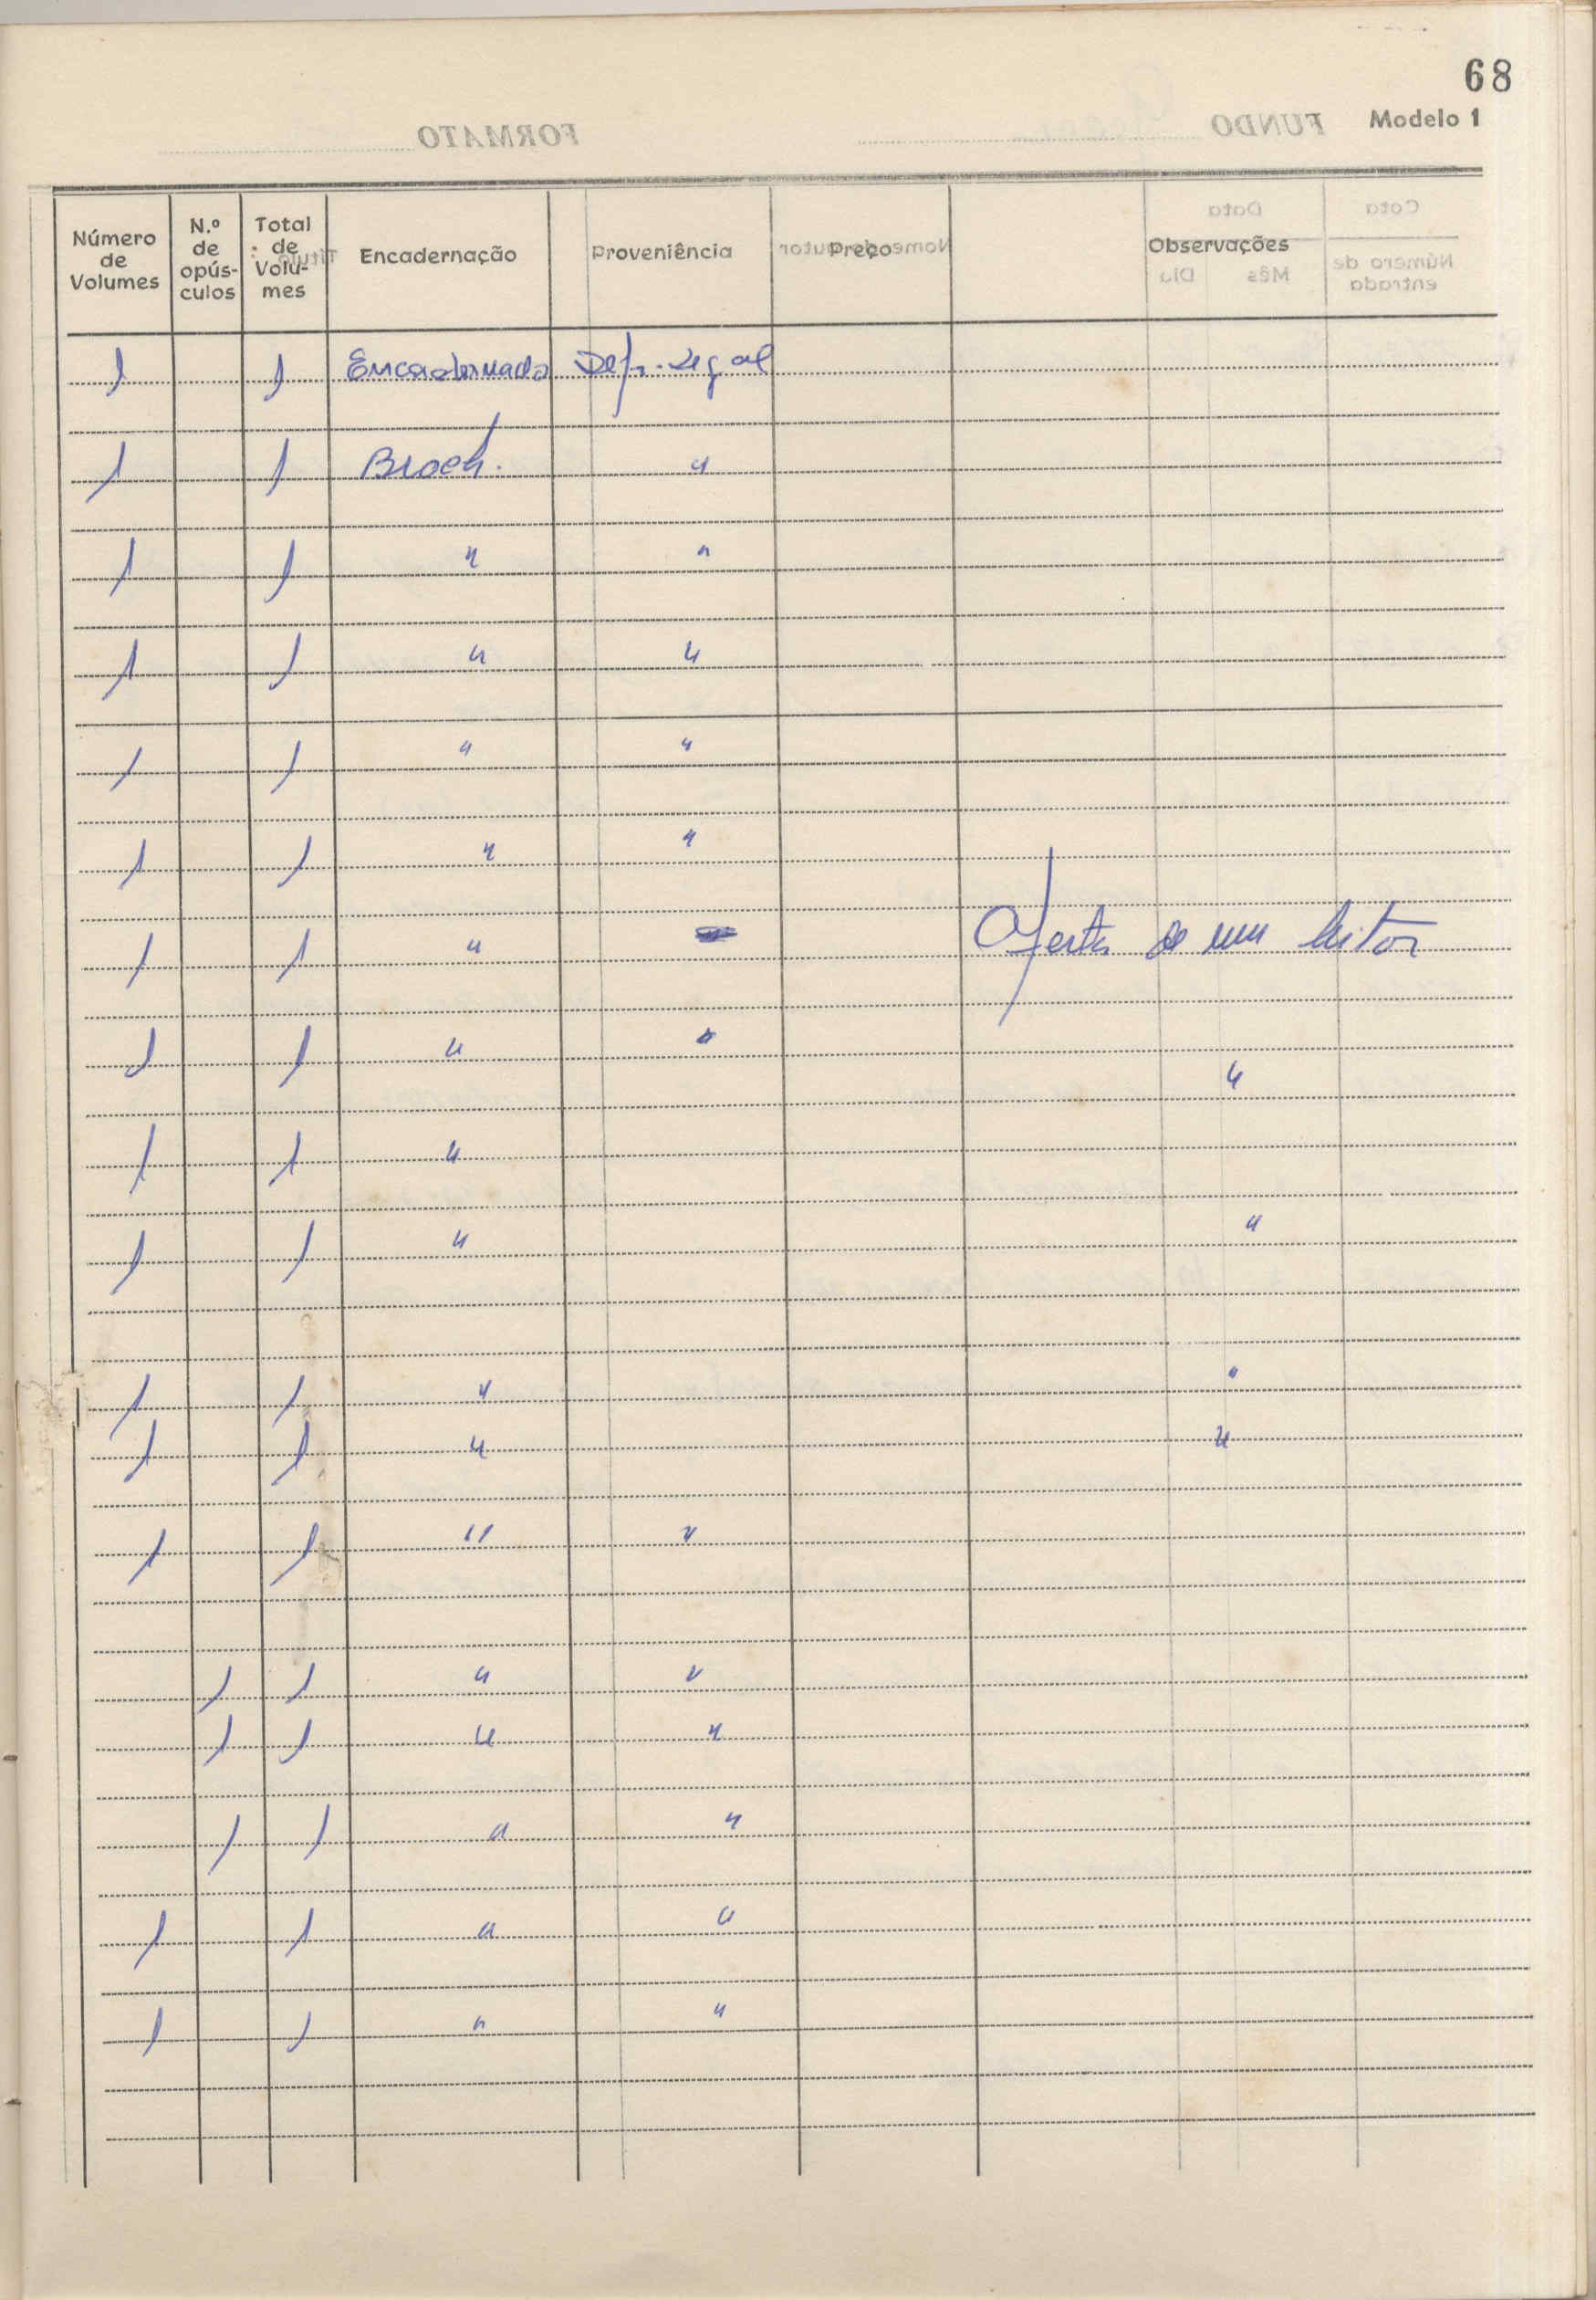 68
Modelo 1
Número de Volumes | N.º de opús-culos | Total de Volu-mes | Encadernação | Proveniência | Preço | Observações
1 | | 1 | Encadernado | Dep. Legal
1 | | 1 | Broch. | "
1 | | 1 | " | "
1 | | 1 | " | "
1 | | 1 | " | "
1 | | 1 | " | "
1 | | 1 | " | | | Oferta de um leitor
1 | | 1 | " | | | "
1 | | 1 | "
1 | | 1 | " | | | "
1 | | 1 | " | | | "
1 | | 1 | " | | | "
1 | | 1 | " | "
| 1 | 1 | " | "
| 1 | 1 | " | "
| 1 | 1 | " | "
1 | | 1 | " | "
1 | | 1 | " | "